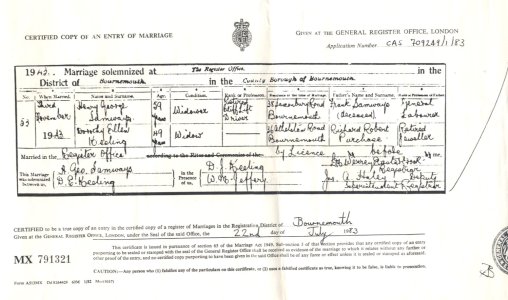 CERTIFIED COPY OF AN ENTRY OF MARRIAGE
GIVEN AT THE GENERAL REGISTER OFFICE, LONDON
Application Number CAS 709249/1/83
1942. Marriage solemnized at The Register Office, in the
District of Bournemouth in the County Borough of Bournemouth
No. When Married. Name and Surname. Age. Condition. Rank or Profession. Residence at the time of Marriage. Father's Name and Surname. Rank or Profession of Father.
53 Third November 1942 Henry George Samways 59 years Widower Retired Driver Bournemouth Frank Samways (deceased) General Labourer
Dorothy Ellen Keeling 49 years Widow Road Bournemouth Richard Robert Purchase Retired Jeweller
Married in the Register Office according to the Rites and Ceremonies of the by Licence before me,
This Marriage was solemnized between us,
H. Geo. Samways
D. E. Keeling
in the Presence of us,
D. J. Keeling
Registrar
Jas. A. Deputy
Superintendent Registrar
CERTIFIED to be a true copy of an entry in the certified copy of a register of Marriages in the Registration District of Bournemouth
Given at the General Register Office, London, under the Seal of the said Office, the 22nd day of July 1983
MX 791321
This certificate is issued in pursuance of section 65 of the Marriage Act 1949. Sub-section 3 of that section provides that any certified copy of an entry
purporting to be sealed or stamped with the seal of the General Register Office shall be received as evidence of the marriage to which it relates without any further or
other proof of the entry, and no certified copy purporting to have been given in the said Office shall be of any force or effect unless it is sealed or stamped as aforesaid.
CAUTION:—Any person who (1) falsifies any of the particulars on this certificate, or (2) uses a falsified certificate as true, knowing it to be false, is liable to prosecution.